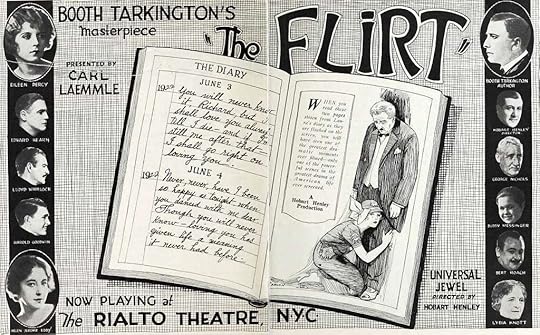 BOOTH TARKINGTON'S
Masterpiece
"The FLIRT"
PRESENTED BY
CARL
LAEMMLE
EILEEN PERCY
EDWARD HEARN
LLOYD WHITLOCK
HAROLD GOODWIN
HELEN JEROME EDDY
THE DIARY
JUNE 3
1922 You will never know
it, Richard, but I
shall love you always
'till I die — and if I'm
still me after that —
I shall go right on
loving you —
JUNE 4
1922 Never, never, have I been
so happy as tonight - when
you danced with me dear.
Though you will never
know - loving you has
given life a meaning
it never had before -
WHEN you
read these
two pages
stolen from Lau-
ra's diary as they
are flashed on the
screen, you will
have seen one of
the greatest dra-
matic moments
ever filmed—only
one of the power-
ful scenes in the
greatest drama of
American life
ever screened.
A
Hobart Henley
Production
BOOTH TARKINGTON
AUTHOR
HOBART HENLEY
DIRECTOR
GEORGE NICHOLS
BUDDY MESSINGER
BERT ROACH
LYDIA KNOTT
UNIVERSAL
JEWEL
DIRECTED BY
HOBART HENLEY
NOW PLAYING at
The RIALTO THEATRE, NYC